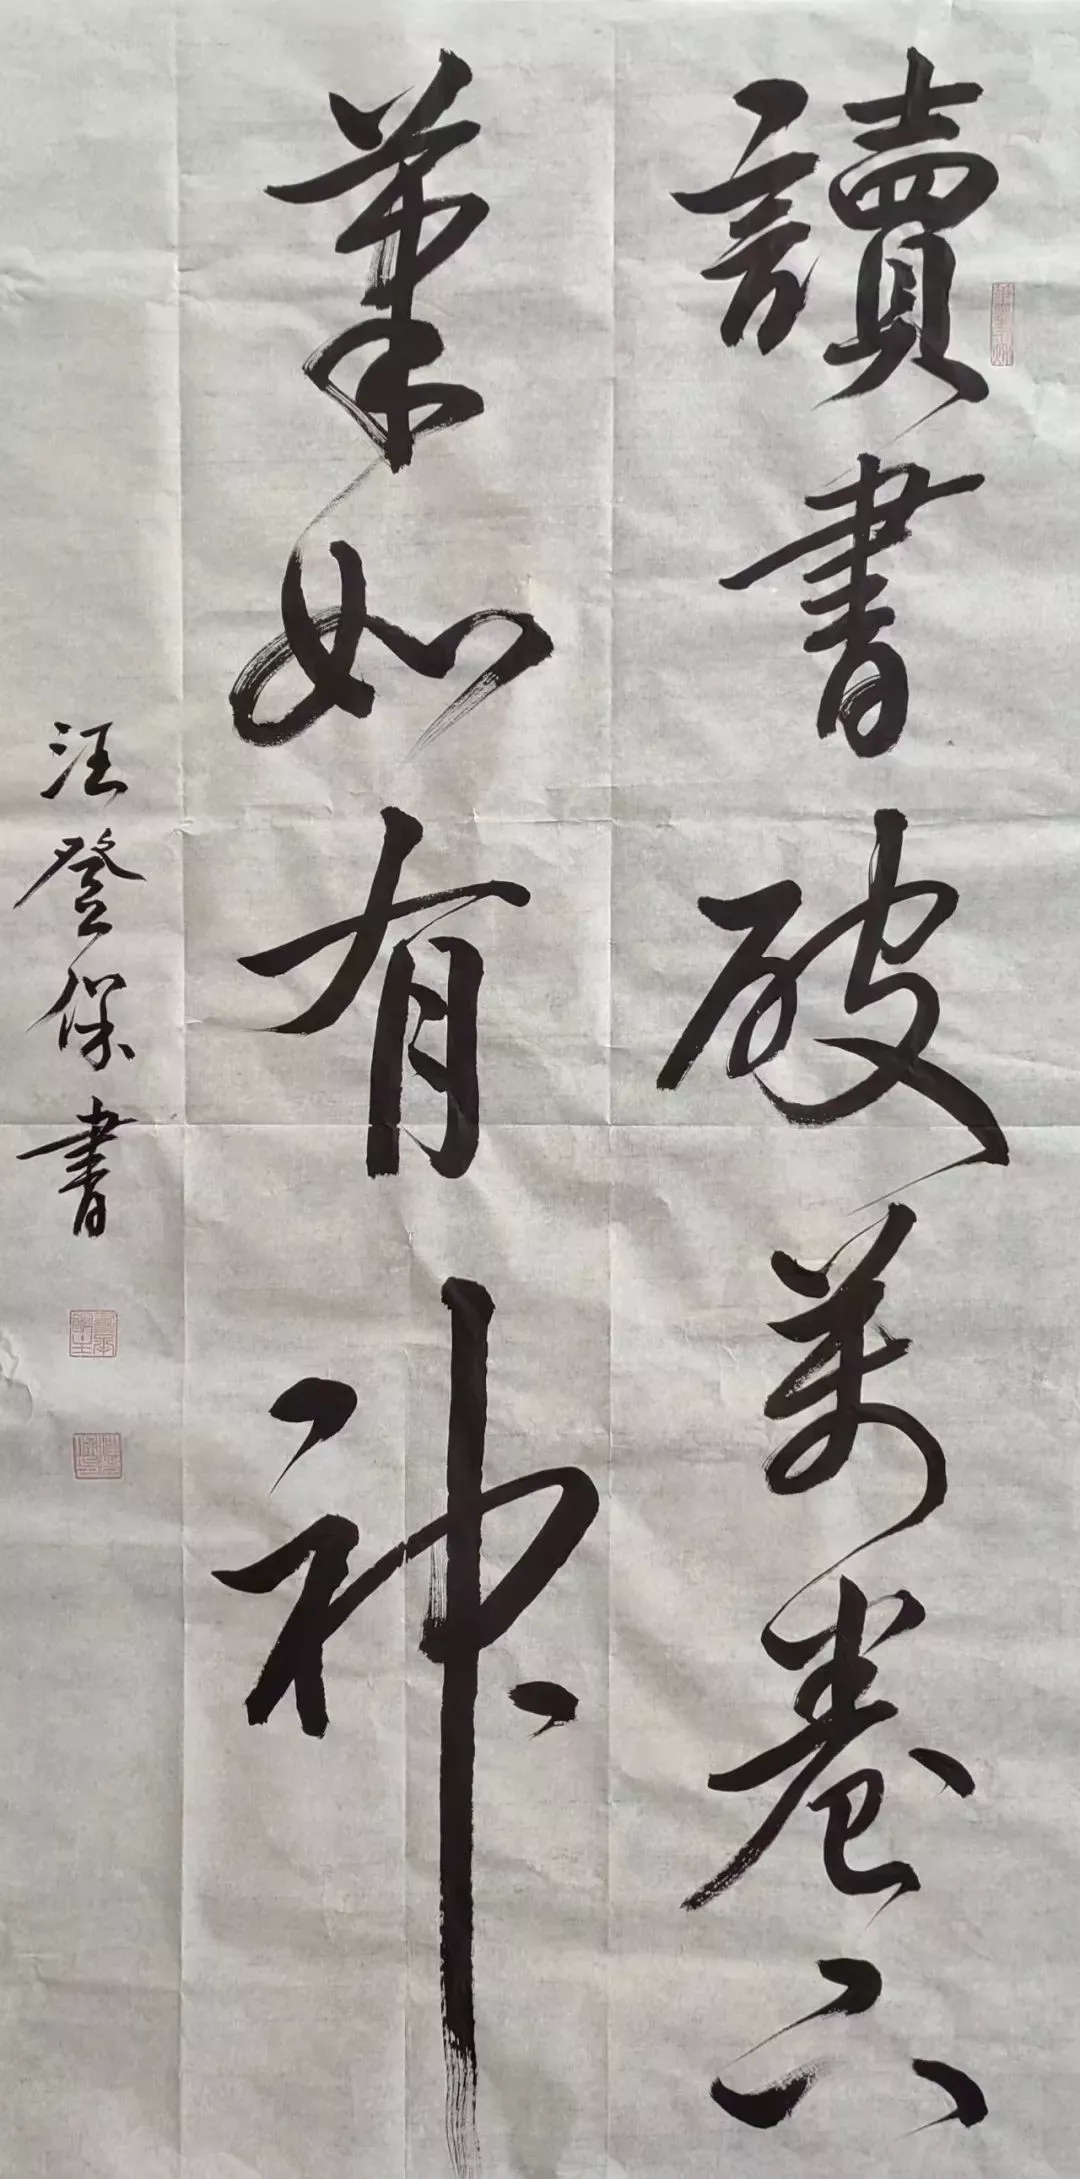 讀書破萬卷下
筆如有神
汪登保書